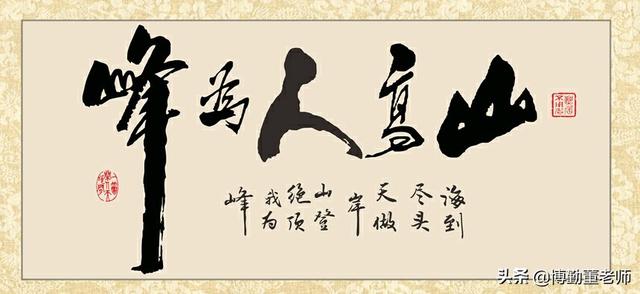 山高人为峰
海到
尽头
天做
岸
山登
绝顶
我为
峰
头条 @博勤董老师